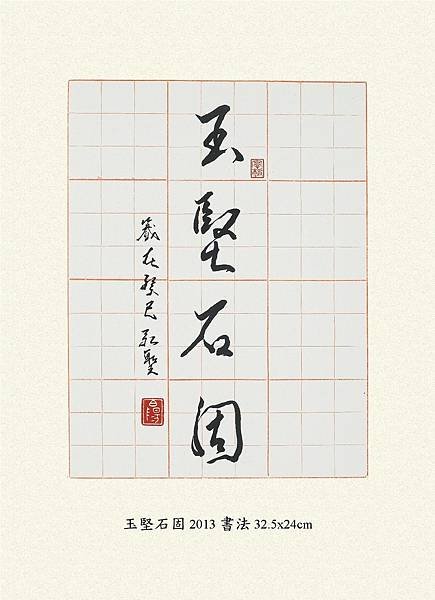 玉堅石固
歲在癸巳
玉堅石固 2013 書法 32.5x24cm